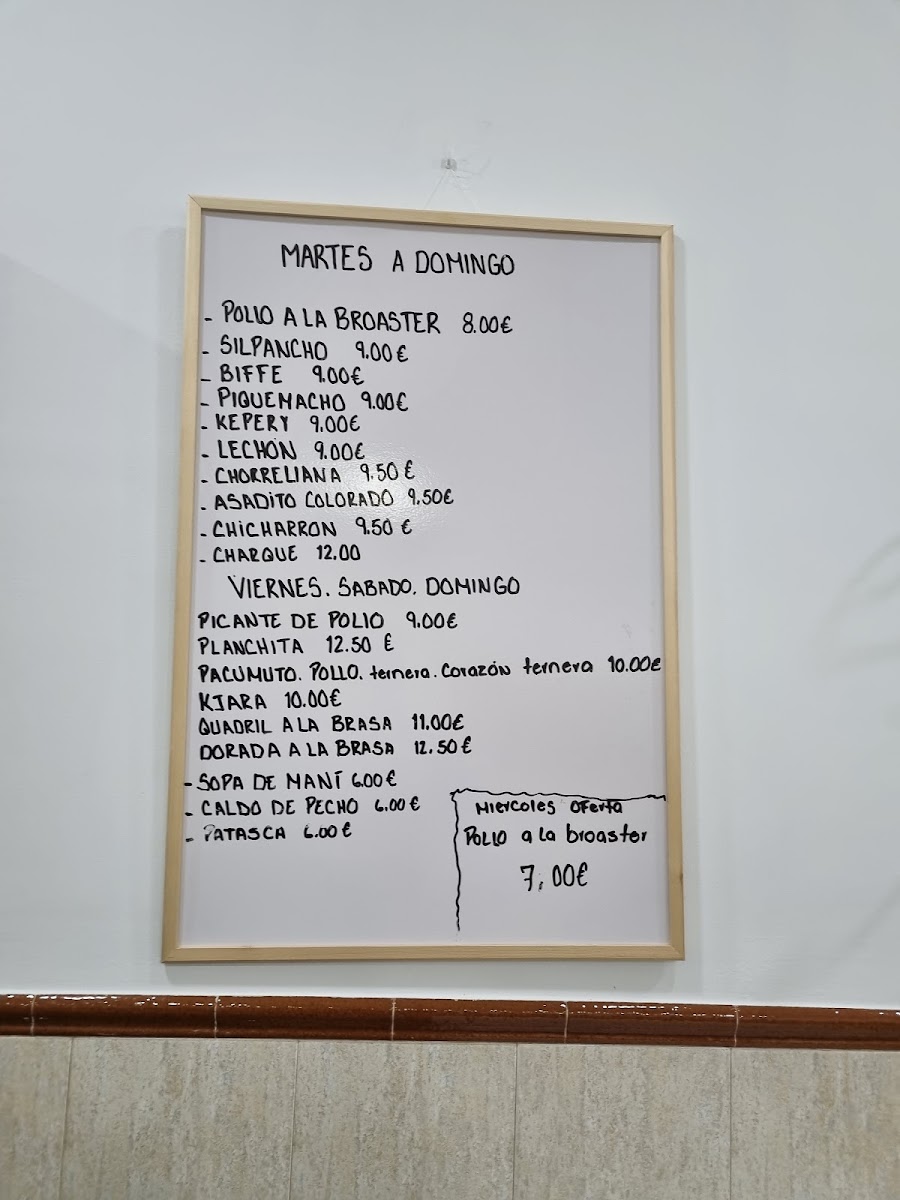 MARTES A DOMINGO
- POLLO A LA BROASTER 8.00€
- SILPANCHO 9.00€
- BIFFE 9.00€
- PIQUEMACHO 9.00€
- KEPERY 9.00€
- LECHÓN 9.00€
- CHORRELLANA 9.50€
- ASADITO COLORADO 9.50€
- CHICHARRON 9.50€
- CHARQUE 12.00
VIERNES. SABADO. DOMINGO
PICANTE DE POLLO 9.00€
PLANCHITA 12.50 €
PACUMUTO. POLLO. ternera. Corazón ternera 10.00€
KJARA 10.00€
QUADRIL A LA BRASA 11.00€
DORADA A LA BRASA 12.50€
- SOPA DE MANÍ 6.00€
- CALDO DE PECHO 6.00€
- PATASCA 6.00€
Miercoles oferta
Pollo a la broaster
7,00€